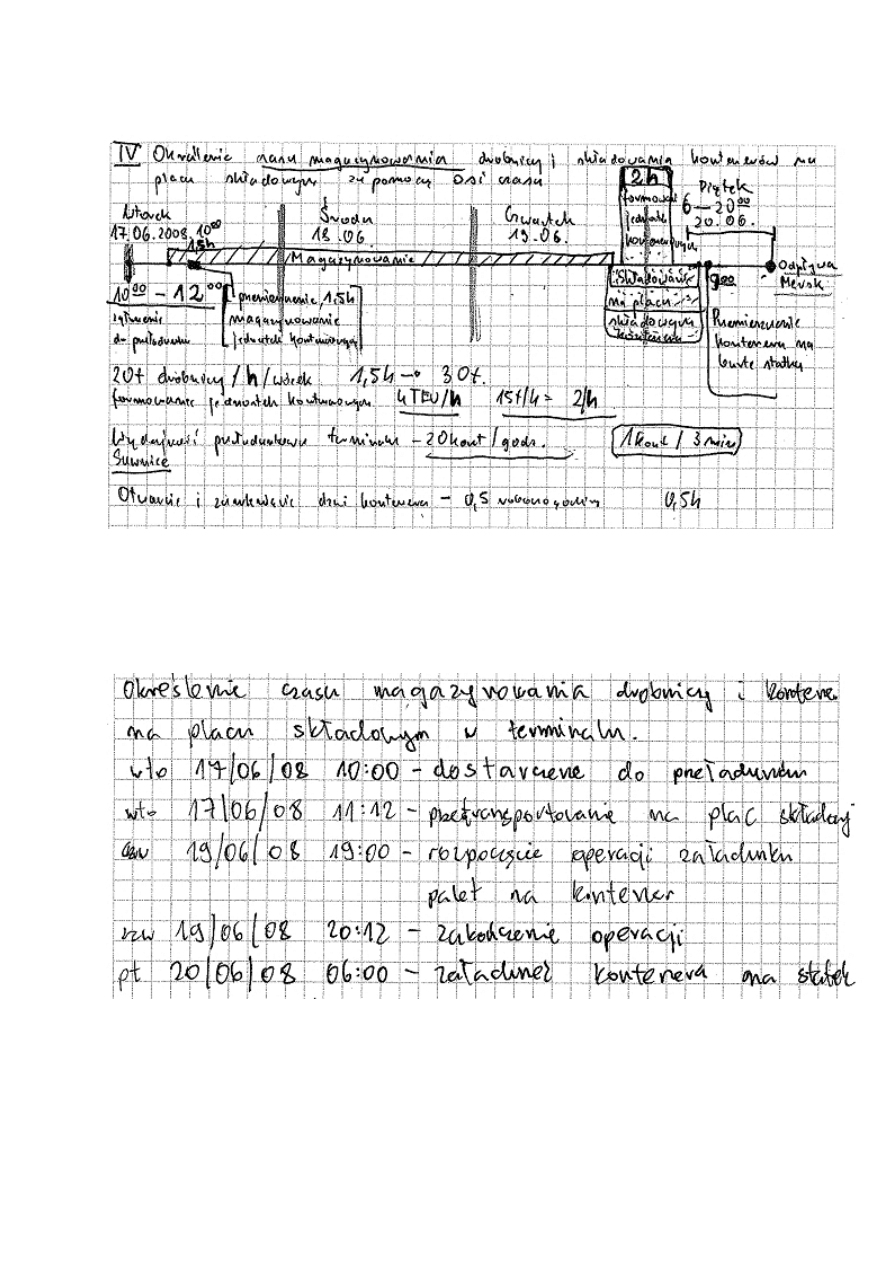 IV Określenie czasu magazynowania drobnicy i składowania kontenerów na
placu składowym za pomocą osi czasu
Wtorek
17.06.2008, 10⁰⁰
1.5h
Środa
18.06.
Czwartek
19.06.
2h
formowanie
jednostek
kontenerowych
Piątek
6-20⁰⁰
20.06.
Magazynowanie
Odpływa
10⁰⁰ - 12⁰⁰
zgłoszenie
do przeładunku
przemieszczenie, 1,5h
magazynowanie
jednostek kontenerowych
składowanie
na placu
składowym
kontenera
9⁰⁰
Przemieszczenie
kontenera na
burtę statku
20t drobnicy/h/wózek 1,5h → 30t.
formowanie jednostek kontenerowych 4 TEU/h 15t/h = 2/h
Wydajność przeładunkowa terminala - 20kont/godz. 1kont / 3min
Suwnice
Otwarcie i zamknięcie drzwi kontenera - 0,5 roboczogodziny 0,5h
Określenie czasu magazynowania drobnicy i kontene
na placu składowym w terminalu.
wto 17/06/08 10:00 - dostarczenie do przeładunku
wto 17/06/08 11:12 - przetransportowanie na plac składowy
czw 19/06/08 19:00 - rozpoczęcie operacji załadunku
palet na kontener
czw 19/06/08 20:12 - zakończenie operacji
pt 20/06/08 06:00 - załadunek kontenera na statek